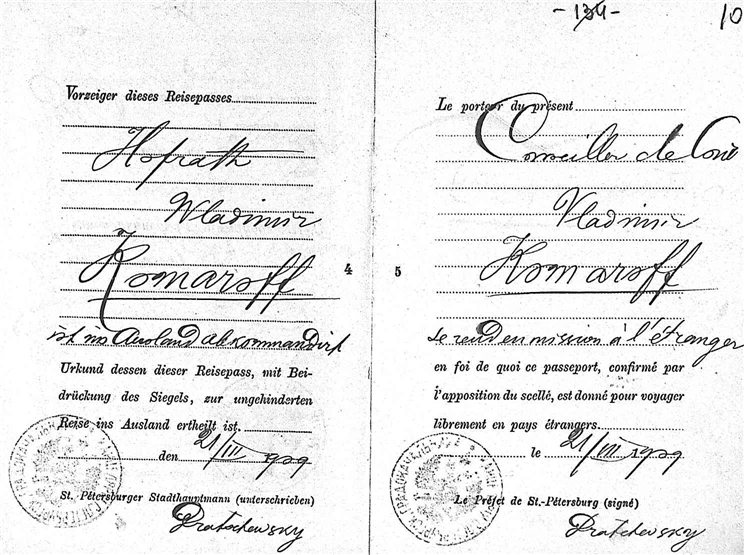 -134-
10
Vorzeiger dieses Reisepasses
Hofrath
Wladimir
Komaroff
ist ins Ausland abkommandirt
Urkund dessen dieser Reisepass, mit Bei-
drückung des Siegels, zur ungehinderten
Reise ins Ausland ertheilt ist.
den 21/VII 1909
St. Petersburger Stadthauptmann (unterschrieben)
Dratschewsky
4
5
Le porteur du présent
Conseiller de Cour
Vladimir
Komaroff
se rend en mission à l'étranger
en foi de quoi ce passeport, confirmé par
l'apposition du scellé, est donné pour voyager
librement en pays étrangers.
le 21/VII 1909
Le Préfet de St.-Pétersburg (signé)
Dratchevsky